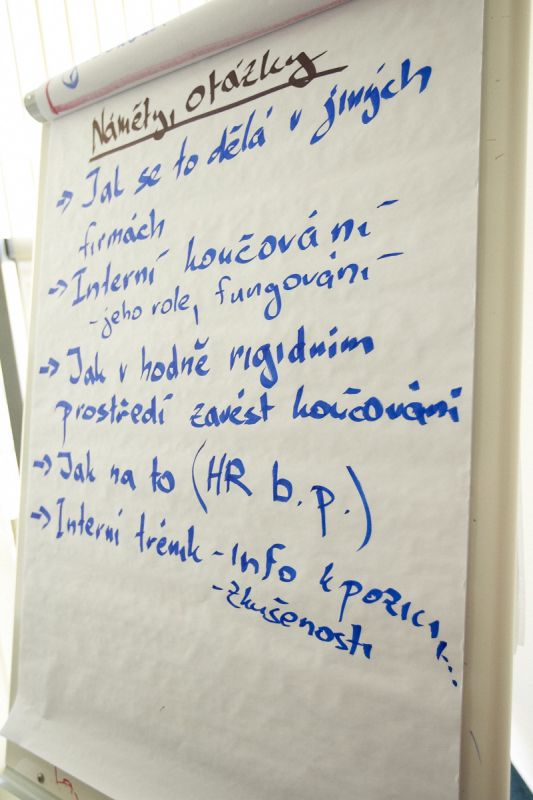 Náměty, otázky
→ Jak se to dělá v jiných
firmách
→ Interní koučování
- jeho role, fungování
→ Jak v hodně rigidním
prostředí zavést koučování
→ Jak na to (HR b.p.)
→ Interní - info k pozici
- zkušenosti